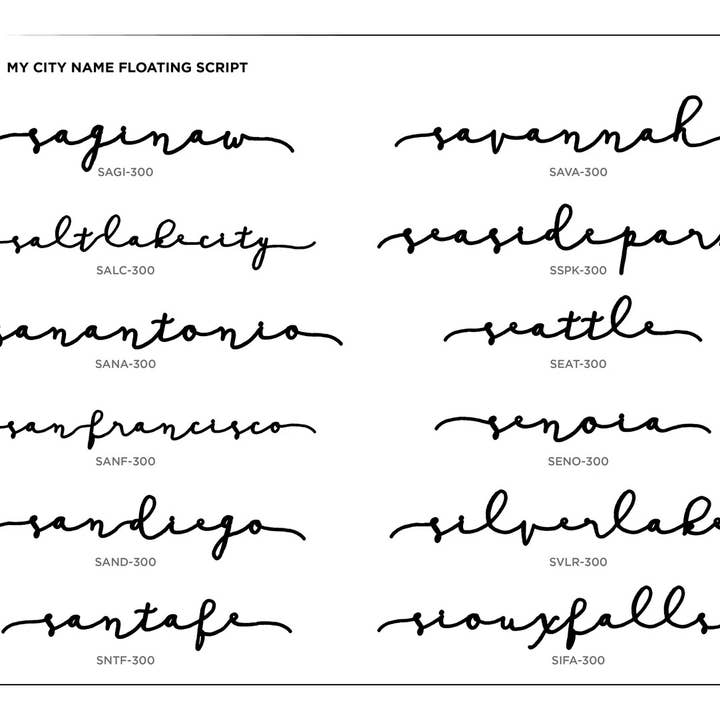 MY CITY NAME FLOATING SCRIPT
saginaw
SAGI-300
saltlakecity
SALC-300
sanantonio
SANA-300
sanfrancisco
SANF-300
sandiego
SAND-300
santafe
SNTF-300
savannah
SAVA-300
seasidepar
SSPK-300
seattle
SEAT-300
senoia
SENO-300
silverlake
SVLR-300
siouxfalls
SIFA-300